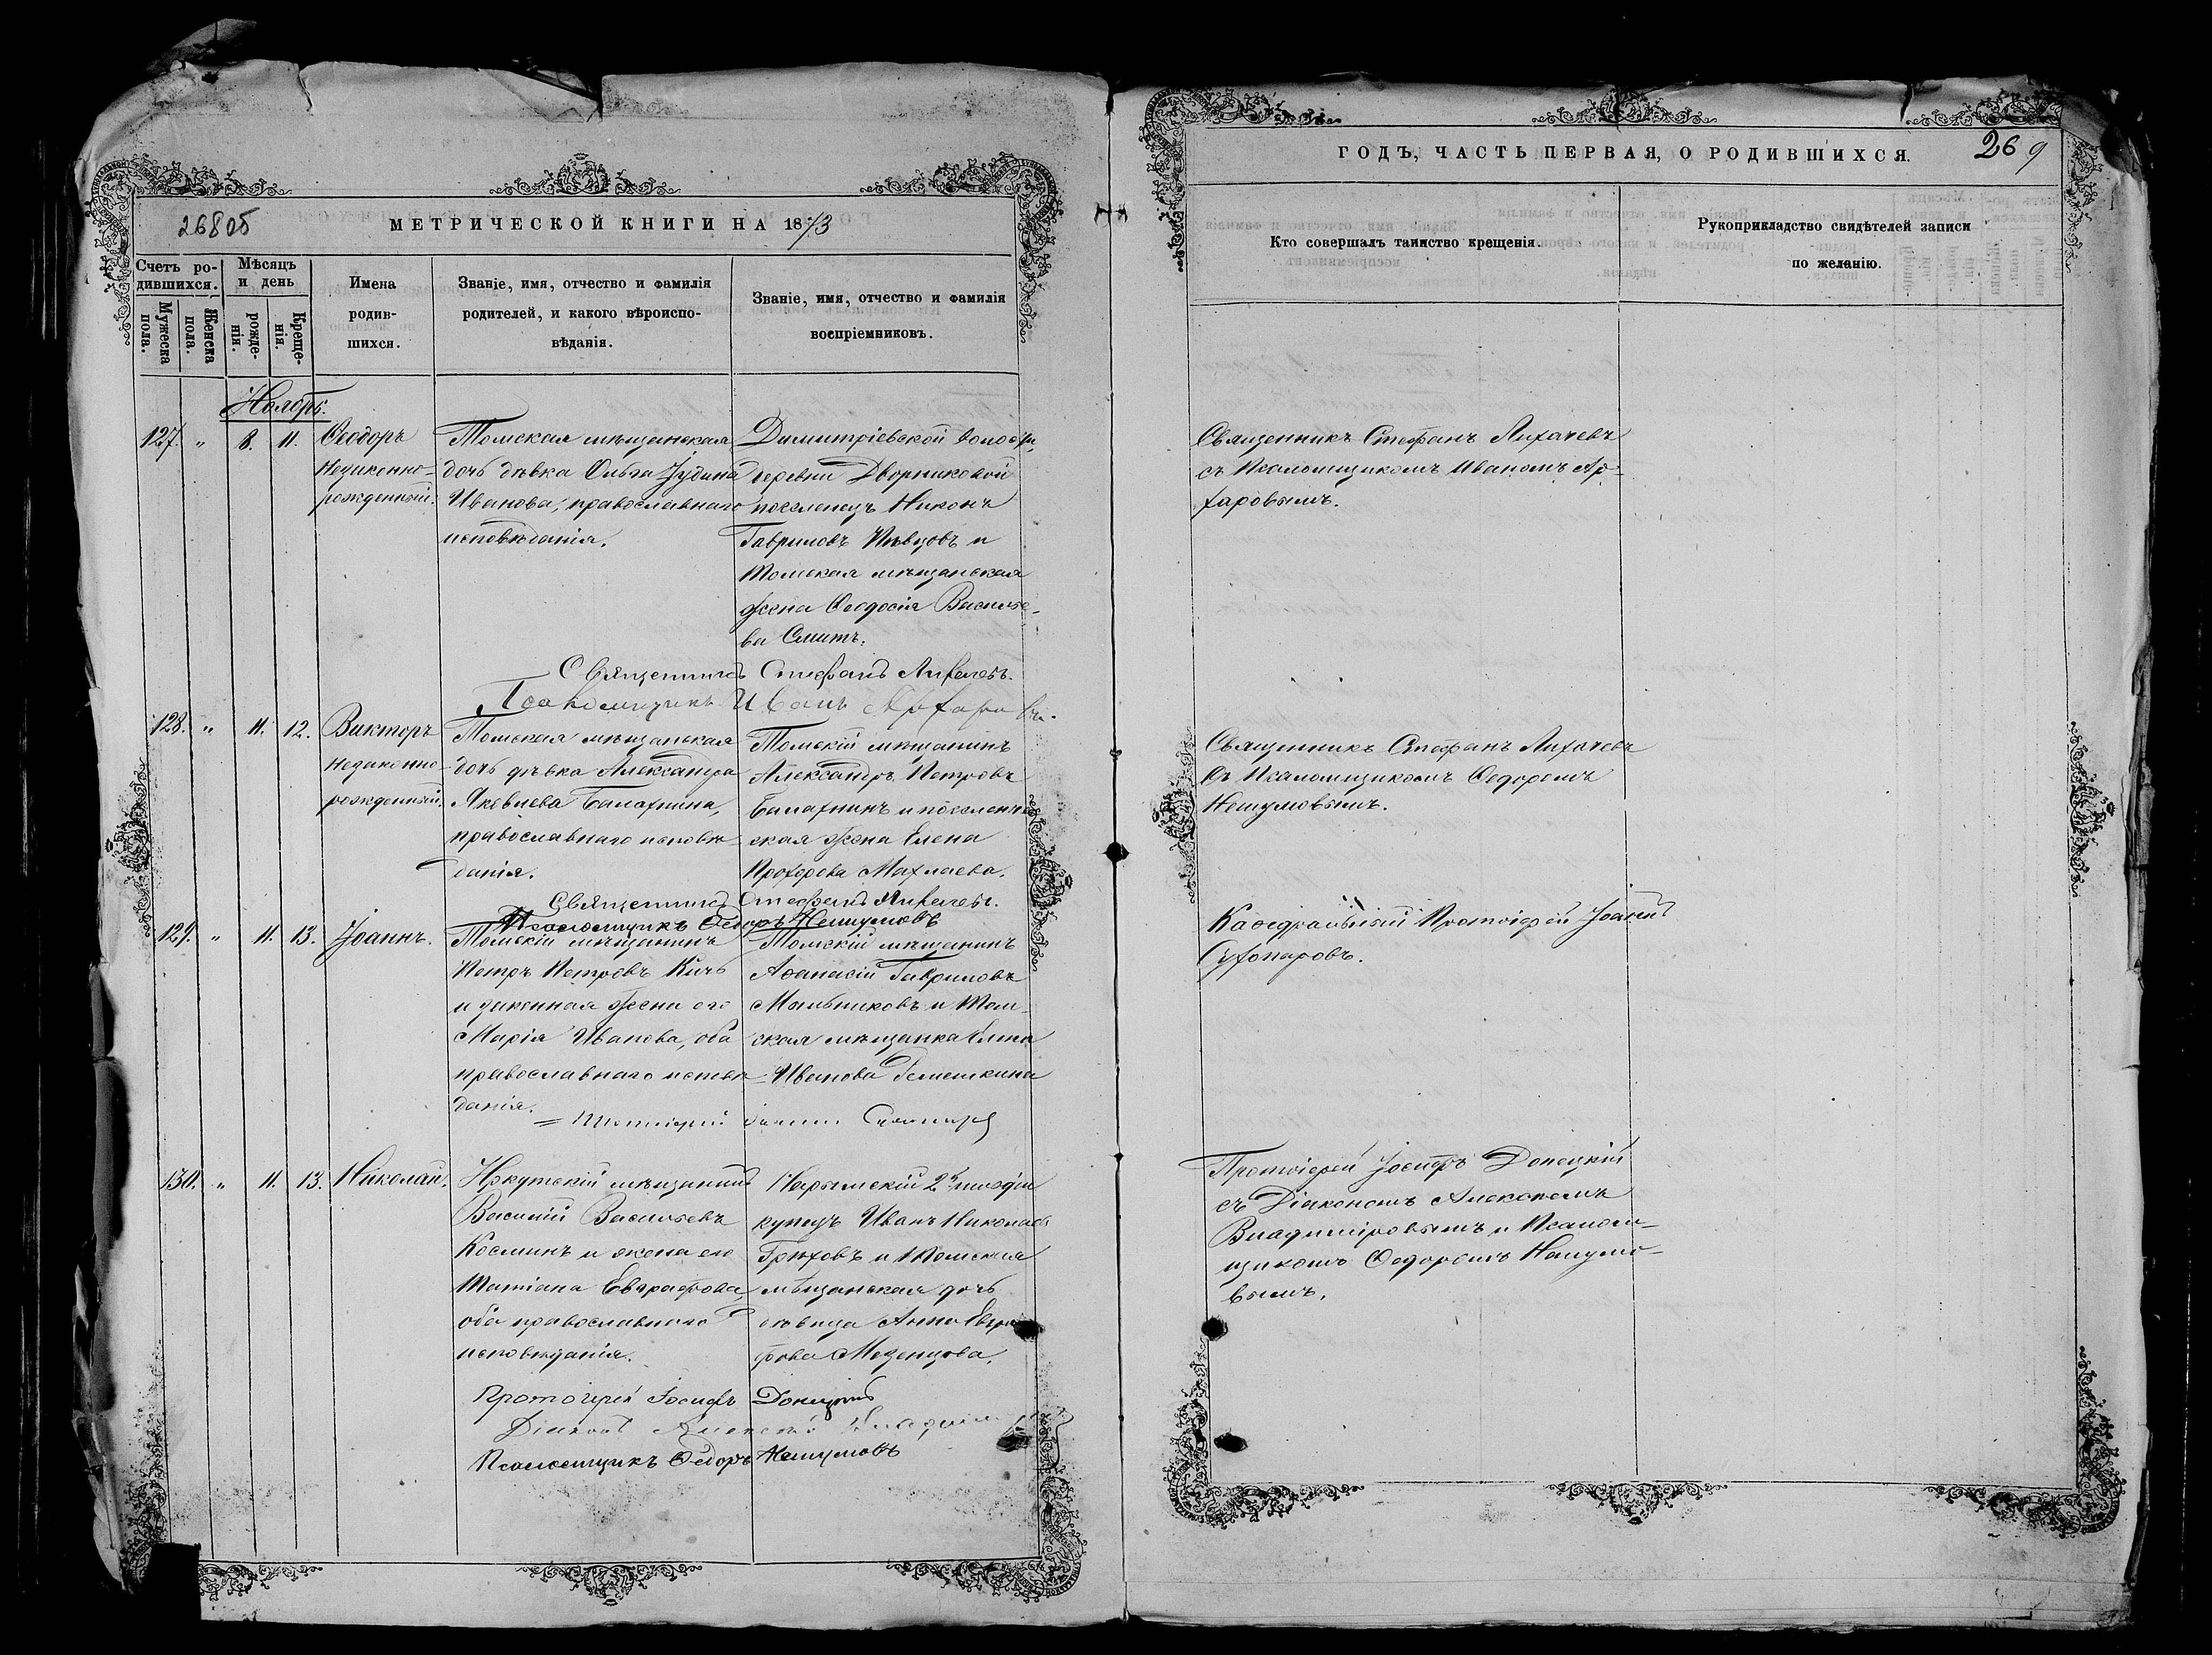 268об
МЕТРИЧЕСКОЙ КНИГИ НА 1873
Счетъ ро-
дившихся.
Мужеска
пола.
Женска
пола.
Мѣсяцъ
и день
рожде-
нія.
Креще-
нія.
Имена
родив-
шихся.
Званіе, имя, отчество и фамилія
родителей, и какого вѣроиспо-
вѣданія.
Званіе, имя, отчество и фамилія
воспріемниковъ.
Ноябрь.
127. " 8. 11.
Ѳеодоръ
незаконно-
рожденный.
Томская мѣщанская
дочь дѣвка Ольга Іудина
Иванова, православнаго
исповѣданія.
Димитріевской волости,
деревни Дворниковой
поселенецъ Никонъ
Гавриловъ Пѣвцовъ и
Томская мѣщанская
жена Ѳеодосія Василье-
ва Смитъ.
Священникъ Стефанъ Лихачевъ.
Псаломщикъ Иванъ
128. " 11. 12.
Викторъ
незаконно-
рожденный.
Томская мѣщанская
дочь дѣвка Александра
Яковлева Балахнина,
православнаго исповѣ-
данія.
Томскій мѣщанинъ
Александръ Петровъ
Балахнинъ и поселенче-
ская жена Елена
Прохорова Махлаева.
Священникъ Стефанъ Лихачевъ.
Псаломщикъ Ѳедоръ Нешумовъ
129. " 11. 13.
Іоаннъ.
Томскій мѣщанинъ
Петръ Петровъ Кичъ
и законная жена его
Марія Иванова, оба
православнаго исповѣ-
данія.
Томскій мѣщанинъ
Аѳанасій Гавриловъ
Мыльниковъ и Том-
ская мѣщанка Елена
Иванова
Протоіерей Іоаннъ
130. " 11. 13.
Николай.
Иркутскій мѣщанинъ
Василій Васильевъ
Косминъ и жена его
Татіана Евграфова,
оба православнаго
исповѣданія.
Нарымскій 2й гильдіи
купецъ Иванъ Николаевъ
Грѣховъ и Томская
мѣщанская дочь
дѣвица Анна Евгра-
фова Мезенцова.
Протоіерей Іосифъ Донецкій
Діаконъ Алексѣй
Псаломщикъ Ѳедоръ Нешумовъ
269
ГОДЪ, ЧАСТЬ ПЕРВАЯ, О РОДИВШИХСЯ.
Кто совершалъ таинство крещенія.
Рукоприкладство свидѣтелей записи
по желанію.
Священникъ Стефанъ Лихачевъ
съ Псаломщикомъ Иваномъ Ар-
фаровымъ.
Священникъ Стефанъ Лихачевъ
съ Псаломщикомъ Ѳедоромъ
Нешумовымъ.
Каѳедральный Протоіерей Іоаннъ
Протоіерей Іосифъ Донецкій
съ Діакономъ Алексѣемъ
Владиміровымъ и Псалом-
щикомъ Ѳедоромъ Нешумо-
вымъ.